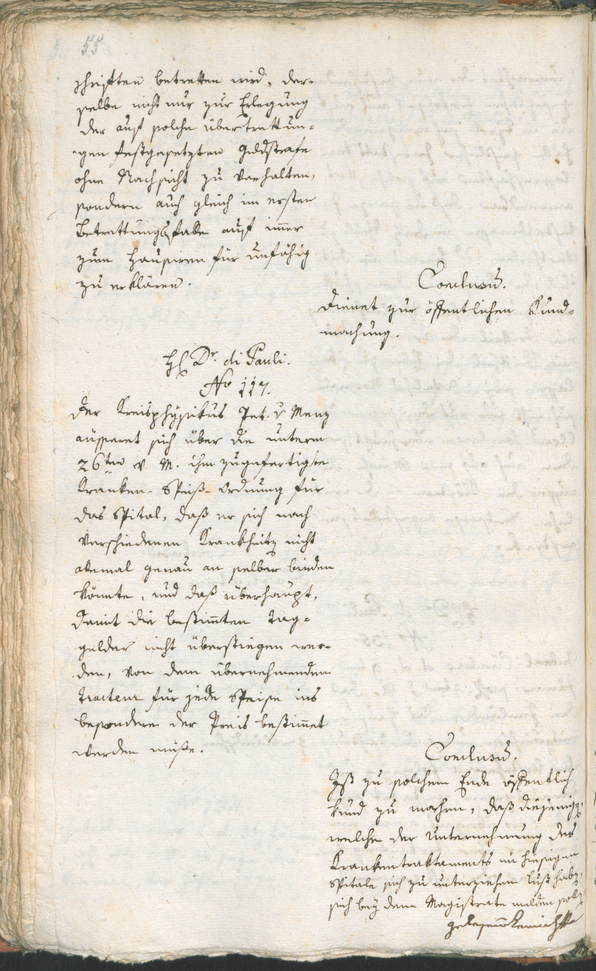 55
schriften betretten wird, der-
selbe nicht nur zur Erlegung
der auf solche übertrettun-
gen festgesetzten Geldstrafe
ohne Nachsicht zu verhalten,
sondern auch gleich im ersten
Betrettungsfalle auf immer
zum Hausiren für unfähig
zu erklären.
Conclusū.
Dienet zur öffentlichen Kund-
machung.
H Dr. di Pauli.
No 117.
Der Kreisphÿsikus Pet. v Menz
äusseret sich über die unterm
26ten v. M. ihm zugefertigte
Kranken-Speiß-Ordnung für
das Spital, daß er sich nach
verschiedenen Krankheitē nicht
allemal genau an selber binden
könnte, und daß überhaupt,
damit die bestimten Tag-
gelder nicht überstiegen wer-
den, von dem übernehmenden
Tracteur für jede Speise ins
besondere der Preis bestimet
werden müße.
Conclusū.
Ist zu solchem Ende öffentlich
kund zu machen, daß diejenigē,
welche der Unternehmung des
Krankentraktaments im hiesigen
Spitale sich zu unterziehen Lust habē,
sich beÿ dem Magistrate melden sollē